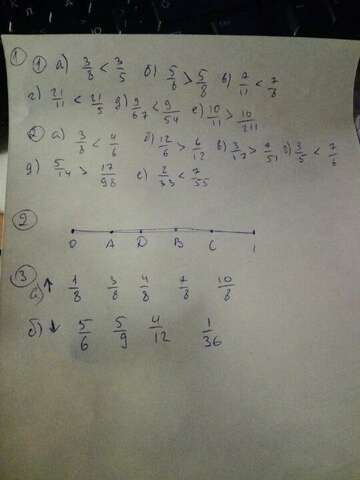 ① 1) а) 3/8 < 3/5 б) 5/6 > 5/8 в) 7/11 < 7/8
г) 21/11 < 21/5 д) 9/67 < 9/54 е) 10/11 > 10/211
② а) 3/8 < 4/6 б) 12/6 > 6/12 в) 3/17 > 7/51 г) 3/5 < 7/6
д) 5/14 > 17/98 е) 2/33 < 7/55
②
0 A D B C 1
③ а) ↑ 1/8 3/8 4/8 7/8 10/8
б) ↓ 5/6 5/9 4/12 1/36